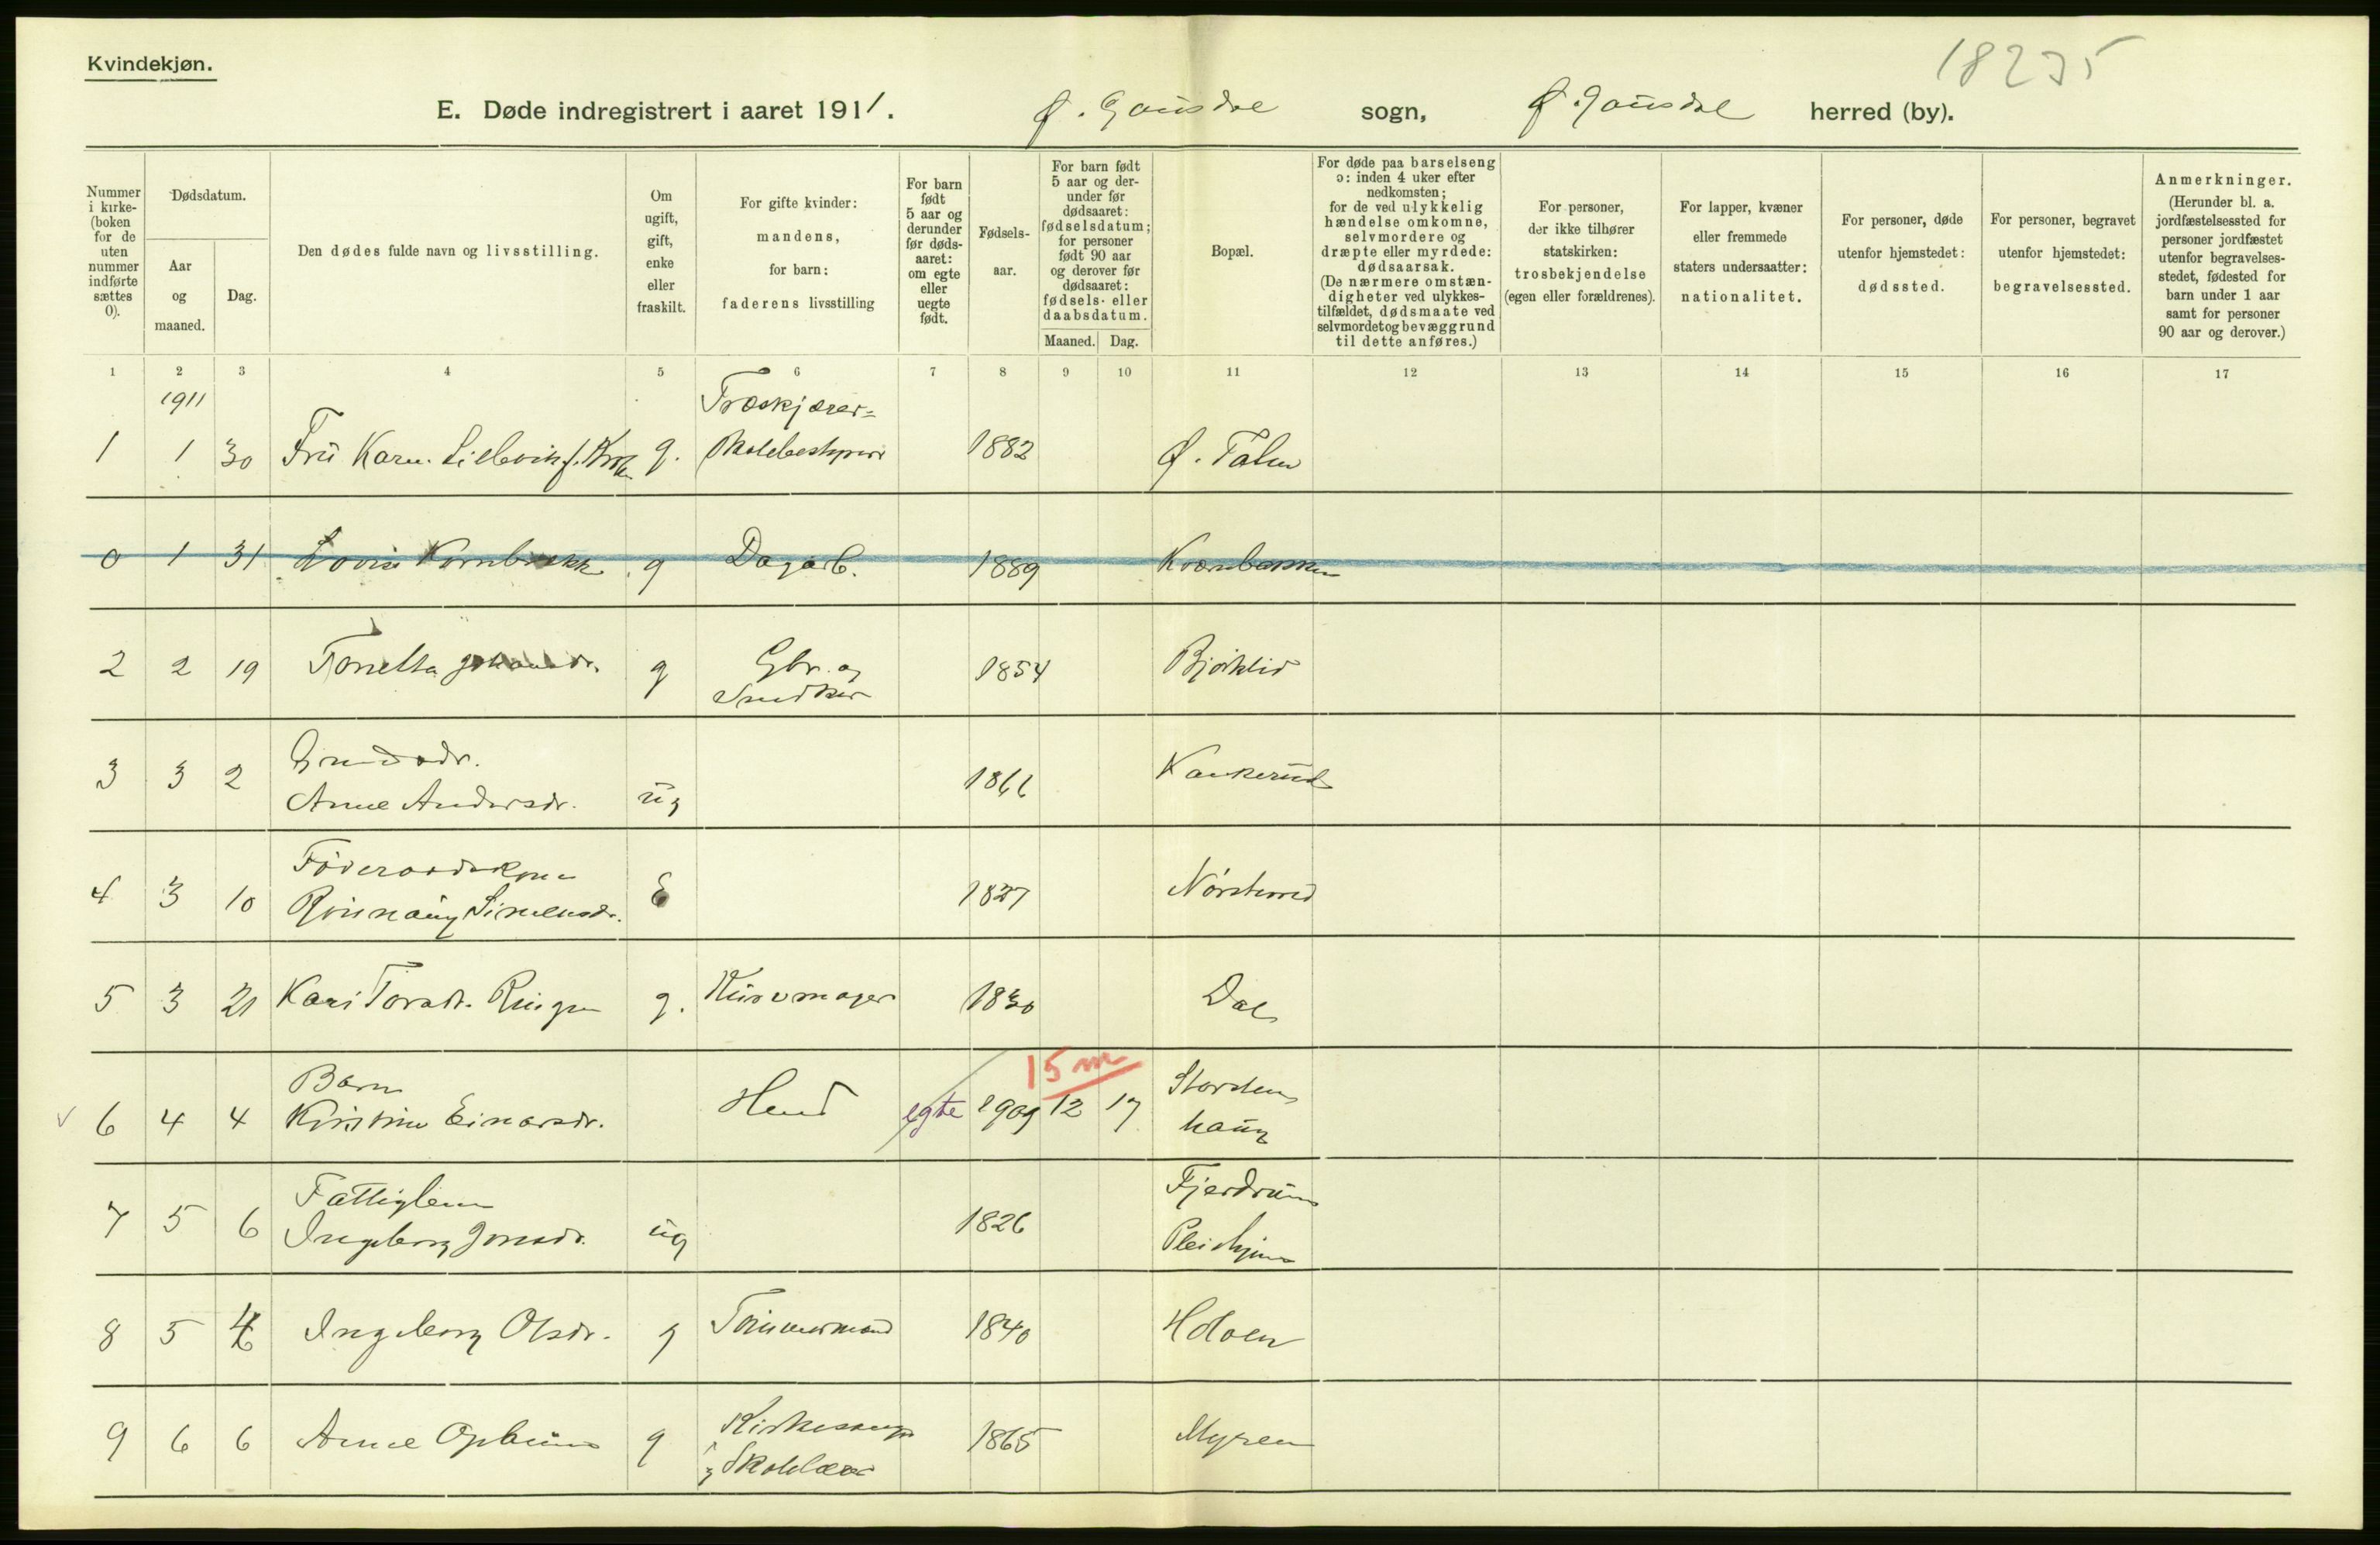 Kvindekjøn.
18235
E. Døde indregistrert i aaret 1911. Ø. Gausdal sogn, Ø. Gausdal herred (by).
Nummer i kirke- (boken for de uten nummer indførte sættes 0).
Dødsdatum.
Aar og maaned.
Dag.
Den dødes fulde navn og livsstilling.
Om ugift, gift, enke eller fraskilt.
For gifte kvinder: mandens, for barn: faderens livsstilling
For barn født 5 aar og derunder før døds- aaret: om egte eller uegte født.
Fødsels- aar.
For barn født 5 aar og der- under før dødsaaret: fødselsdatum; for personer født 90 aar og derover før dødsaaret: fødsels- eller daabsdatum.
Maaned. Dag.
Bopæl.
For døde paa barselseng ɔ: inden 4 uker efter nedkomsten; for de ved ulykkelig hændelse omkomne, selvmordere og dræpte eller myrdede: dødsaarsak. (De nærmere omstæn- digheter ved ulykkes- tilfældet, dødsmaate ved selvmordet og bevæggrund til dette anføres.)
For personer, der ikke tilhører statskirken: trosbekjendelse (egen eller forældrenes).
For lapper, kvæner eller fremmede staters undersaatter: nationalitet.
For personer, døde utenfor hjemstedet: dødssted.
For personer, begravet utenfor hjemstedet: begravelsessted.
Anmerkninger. (Herunder bl. a. jordfæstelsessted for personer jordfæstet utenfor begravelses- stedet, fødested for barn under 1 aar samt for personer 90 aar og derover.)
1 2 3 4 5 6 7 8 9 10 11 12 13 14 15 16 17
1911 Træskjærer-
1 1 30 Fru Karen g. skolebestyrer 1882 Ø.
0 1 31 Lovise g Dagarb. 1889 Kvernbakken
2 2 19 Tonetta Johansdr. g Gbr. og 1854 Bjørklid
Snedker
3 3 2 Anne Andersdr. ug 1866 Kankerud
4 3 10 Føderaadskone
Rønnaug Simensdr. E 1827
5 3 21 Kari Torsdr. Ringen g. Husmager 1830 Dal
15 m
Barn
6 4 4 Kristine Einarsdr. egte 1909 12 17 Storsten
haug
7 5 6 Fattiglem
Ingeborg Jonsdr. ug 1826 Fjerdrum
Pleiehjem
8 5 4 Ingeborg Olsdr. g Tømmermand 1840 Holoen
9 6 6 Anne g Kirkesanger 1865 Myren
og Skolelærer